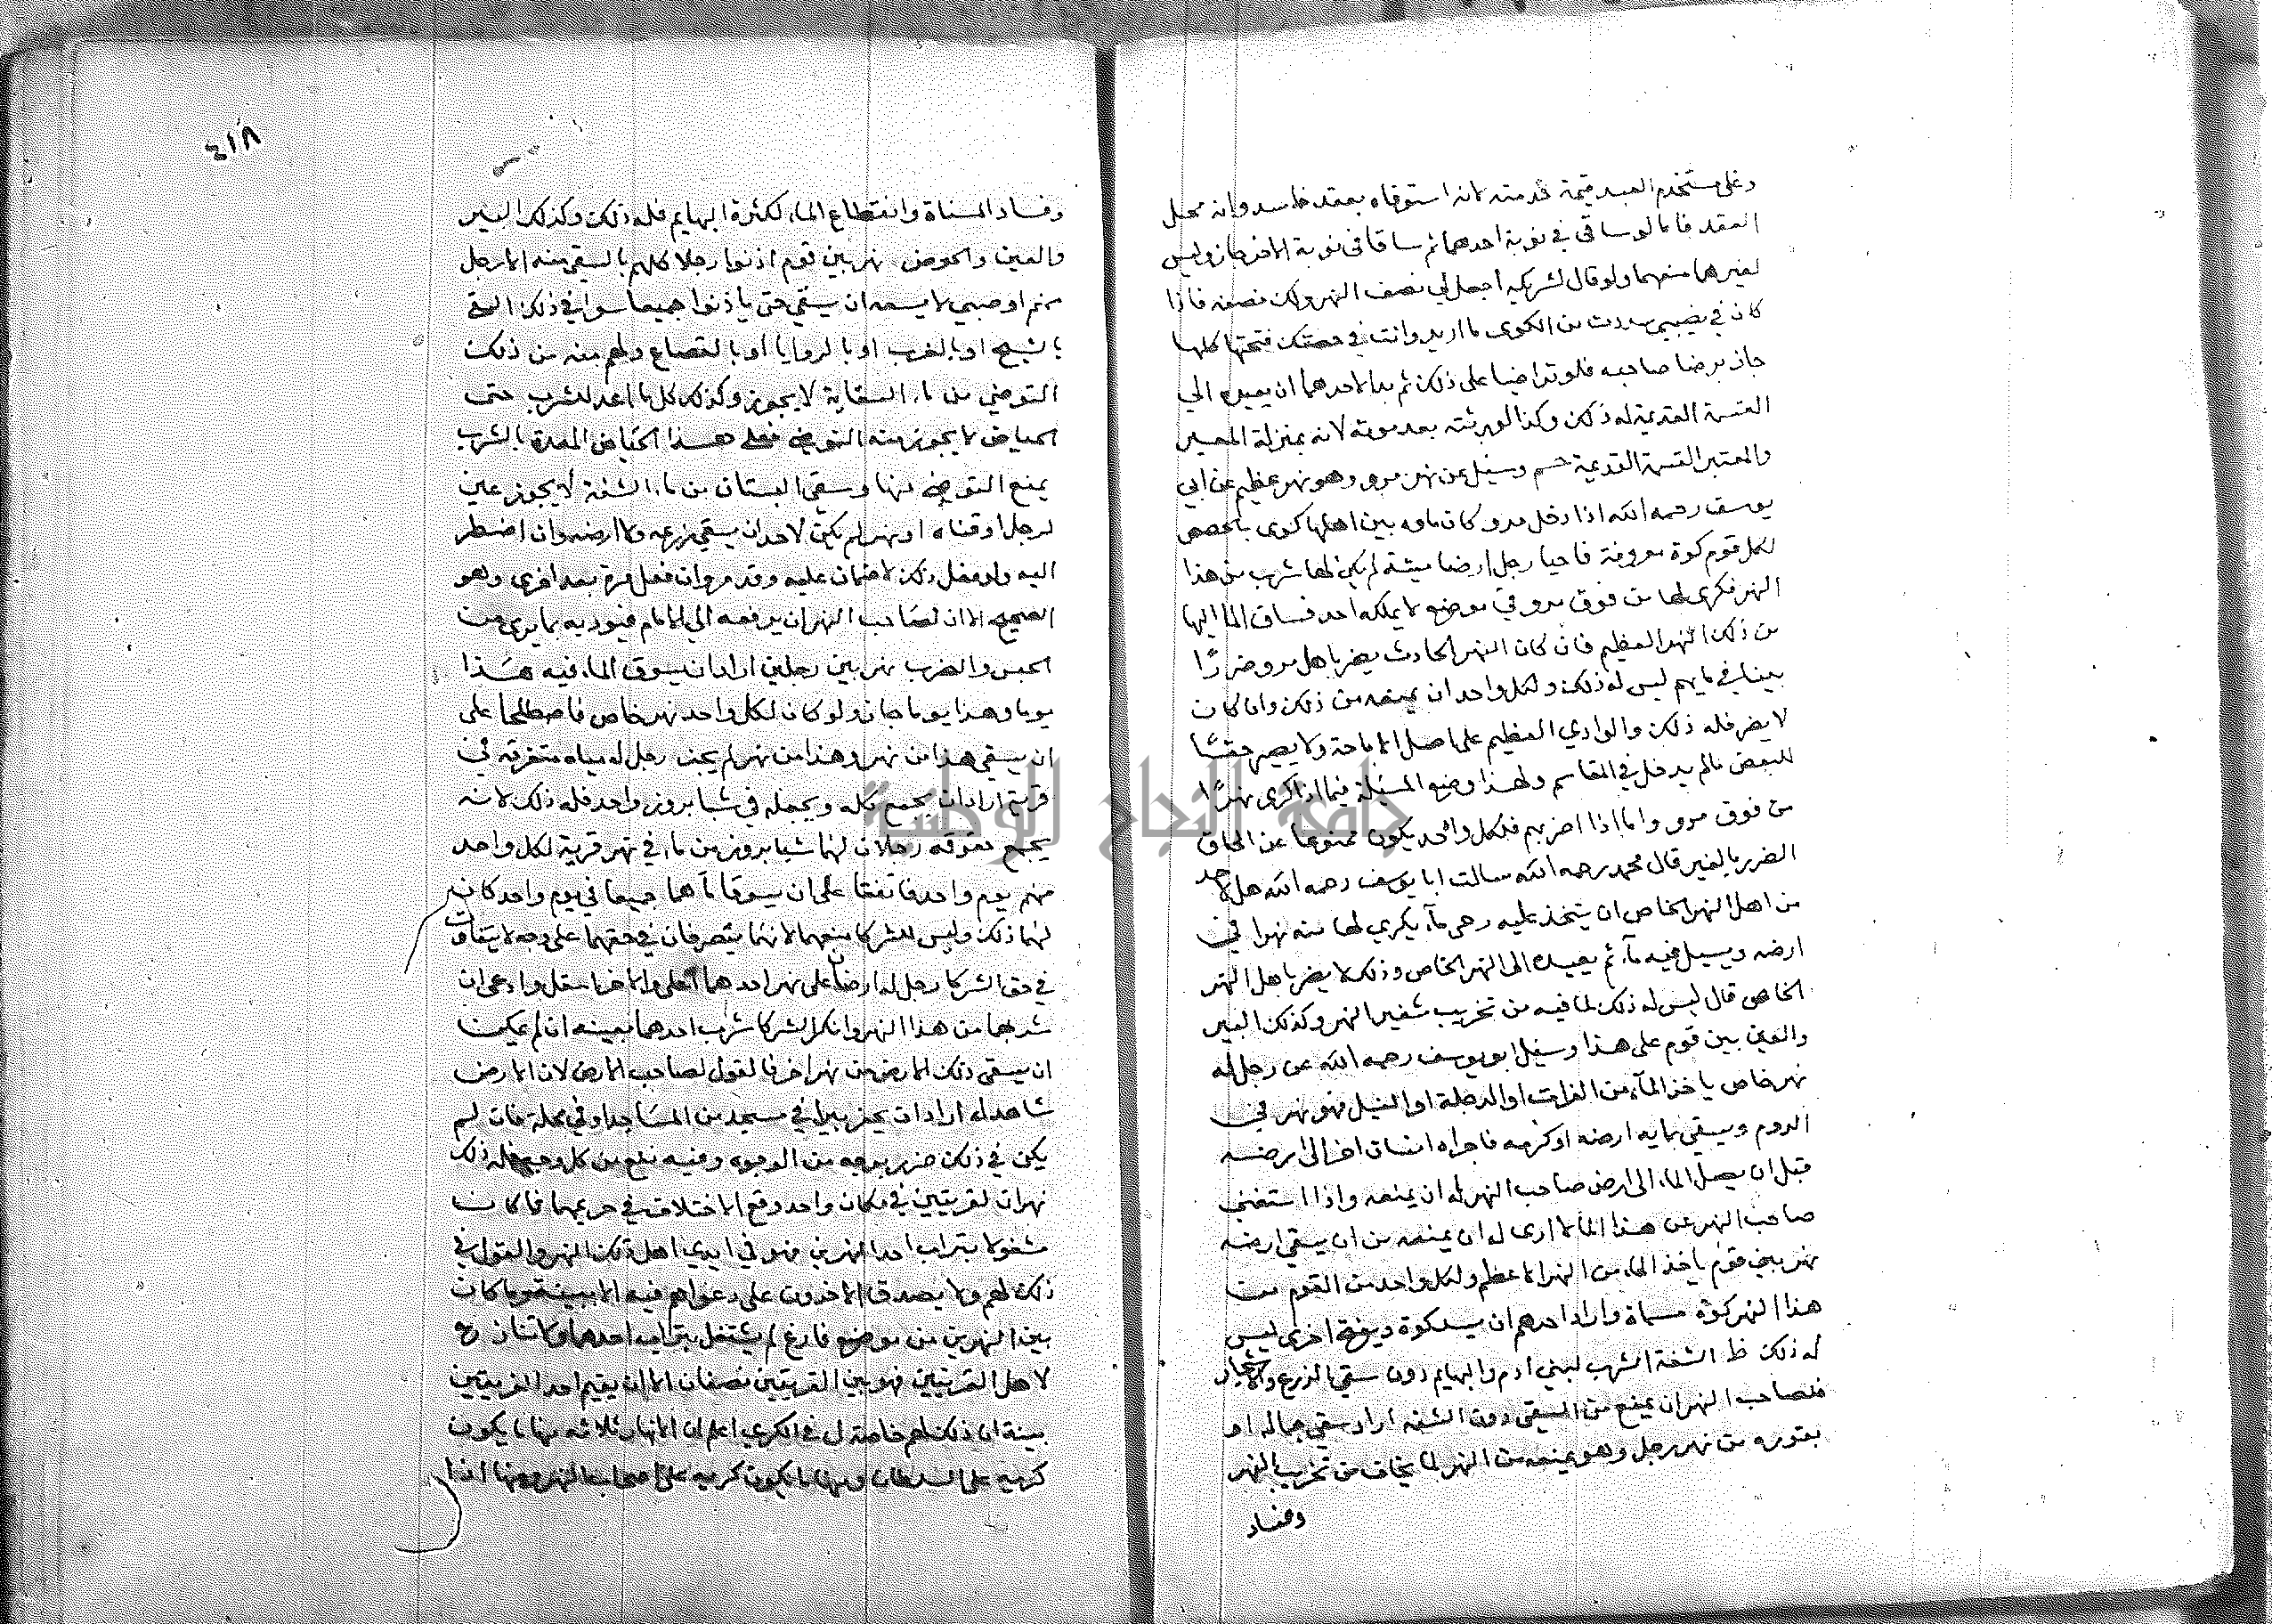 وعلى مستخدم العبد قيمة خدمته لانه استوفاه بعقد فاسد وانه محل
العقد فاما لو ساقا في نوبة احدهما ثم ساقا في نوبة الاخر جاز وليس
لغيرهما منعهما ولو قال لشريكه اجعل لي نصف النهر ولك نصفه فاذا
كان في نصيبي سددت من الكوى ما اريد وانت في حصتك فتحتها كلها
جاز برضا صاحبه فلو تراضيا على ذلك ثم بدا لاحدهما ان يعيده الي
القسمة القديمة له ذلك وكذا لورثته بعد موته لانه بمنزلة المعير
والمعتبر القسمة القديمة وسيل عن نهر مرو وهو نهر عظيم عن ابي
يوسف رحمه الله اذا دخل مرو كان ماوه بين اهلها كوى بالحصص
لكل قوم كوة معروفة فاحيا رجل ارضا ميتة لم يكن لها شرب من هذا
النهر فكرى لها من فوق مرو في موضع لا يملكه احد فساق الما اليها
من ذلك النهر العظيم فان كان النهر الحادث يضر باهل مرو ضررًا
بينا في مايهم ليس له ذلك ولكل واحد ان يمنعه من ذلك وان كان
لا يضر فله ذلك والوادي العظيم على اصل الاباحة ولا يصير حقًا
للبعض مالم يدخل في المقاسم ولهذا وضع المسئلة فيما اذا كرى نهرًا
من فوق مرو واما اذا اضر بهم فلكل واحد يكون ممنوعا عن الحاق
الضرر بالغير قال محمد رحمه الله سالت ابا يوسف رحمه الله هل لاحد
من اهل النهر الخاص ان يتخذ عليه رحى مآء يكري لها منه نهرا في
ارضه ويسيل فيه مآء ثم يعيده الى النهر الخاص وذلك لا يضر باهل النهر
الخاص قال ليس له ذلك لما فيه من تخريب شفير النهر وكذلك البير
والعين بين قوم على هذا وسيل ابو يوسف رحمه الله عن رجل له
نهر خاص ياخذ المآء من الفرات او الدجلة او النيل فهو نهر في
الروم ويسقي بمايه ارضه او كرمه فاجراه انسان اخر الى ارضه
قبل ان يصل الماء الى ارض صاحب النهر له ان يمنعه واذا استغنى
صاحب النهر عن هذا الما لا ارى له ان يمنعه من ان يسقي ارضه
نهر بين قوم ياخذ الماء من النهر الاعظم ولكل واحد من القوم من
هذا النهر كوة مسماة واراد احدهم ان يسد كوة ويفتح اخرى ليس
له ذلك ظ الشفة الشرب لبني ادم والبهايم دون سقي الزرع والاشجار
فلصاحب النهر ان يمنع من السقي دون الشفه اراد سقي جماله او
بقوره من نهر رجل وهو يمنعه من النهر لما يخاف من تخريب النهر
وفساد
٤١٨
وفساد المسناة وانقطاع الماء لكثرة البهايم فله ذلك وكذلك البير
والعين والحوض نهر بين قوم اذنوا رجلا كلهم بالسقي منه الا رجل
منهم او صبي لا يسعه ان يسقي حتى ياذنوا جميعا سوا في ذلك السقي
او بالغرب او بالروايا او بالقصاع ولهم منه من ذلك
التوضي من ماء السقاية لا يجوز وكذلك كل ما اعد للشرب حتى
الحياض لا يجوز منه التوضي فعلى هذا الحياض المعدة بالشرب
يمنع التوضي منها وسقي البستان من ماء الشفة لا يجوز عين
لرجل او قناه او نهر لم يكن لاحد ان يسقي زرعه ولا ارضه وان اضطر
اليه ولو فعل ذلك لا ضمان عليه وقد مر وان فعل مرة بعد اخرى وهو
الصحيح الا ان لصاحب النهر ان يرفعه الي الامام فيؤدبه بما يرى من
الحبس والضرب نهر بين رجلين ارادا ان يسوق الماء فيه هذا
يوما وهذا يوما جاز ولو كان لكل واحد نهر خاص فاصطلحا على
ان يسقي هذا من نهر وهذا من نهر لم يجز رجل له مياه متفرقه في
قرية اراد ان يجمع كله ويجعله في شبا بروز واحد فله ذلك لانه
يجمع حقوقه رجلان لهما شبا بروز من ماء في نهر قرية لكل واحد
منهم يوم واحد فاتفقا على ان يسوقا مآءهما جميعا في يوم واحد كان
لهما ذلك وليس للشركا منعهما لانهما يتصرفان في حقهما على وجه لا يتفاوت
في حق الشركا رجل له ارضان على نهر احدهما اعلى والاخر اسفل وادعى ان
شربهما من هذا النهر وانكر الشركا شرب احدهما بعينه ان لم يمكن
ان يسقى ذلك الارض من نهر اخر فالقول لصاحب الارض لان الارض
شاهد له اراد ان يحفر بيرا في مسجد من المساجد او في محلة فان لم
يكن في ذلك ضرر بوجه من الوجوه وفيه نفع من كل وجه فله ذلك
نهران لقريتين في مكان واحد وقع الاختلاف في حريمهما فما كان
مشغولا بتراب احد النهرين فهو في ايدي اهل ذلك النهر والقول في
ذلك لهم ولا يصدق الاخرون على دعواهم فيه الا ببينة وما كان
بين النهرين من موضع فارغ لم يشتغل بتراب احدهما
لاهل القريتين فهو بين القريتين نصفان الا ان يقيم احد الفريقين
بينة ان ذلك لهم خاصة ل في الكري اعلم ان الانهار ثلاثه منها ما يكون
كريه على السلطان ومنها ما يكون كريه على اصحاب النهر ومنها اذا